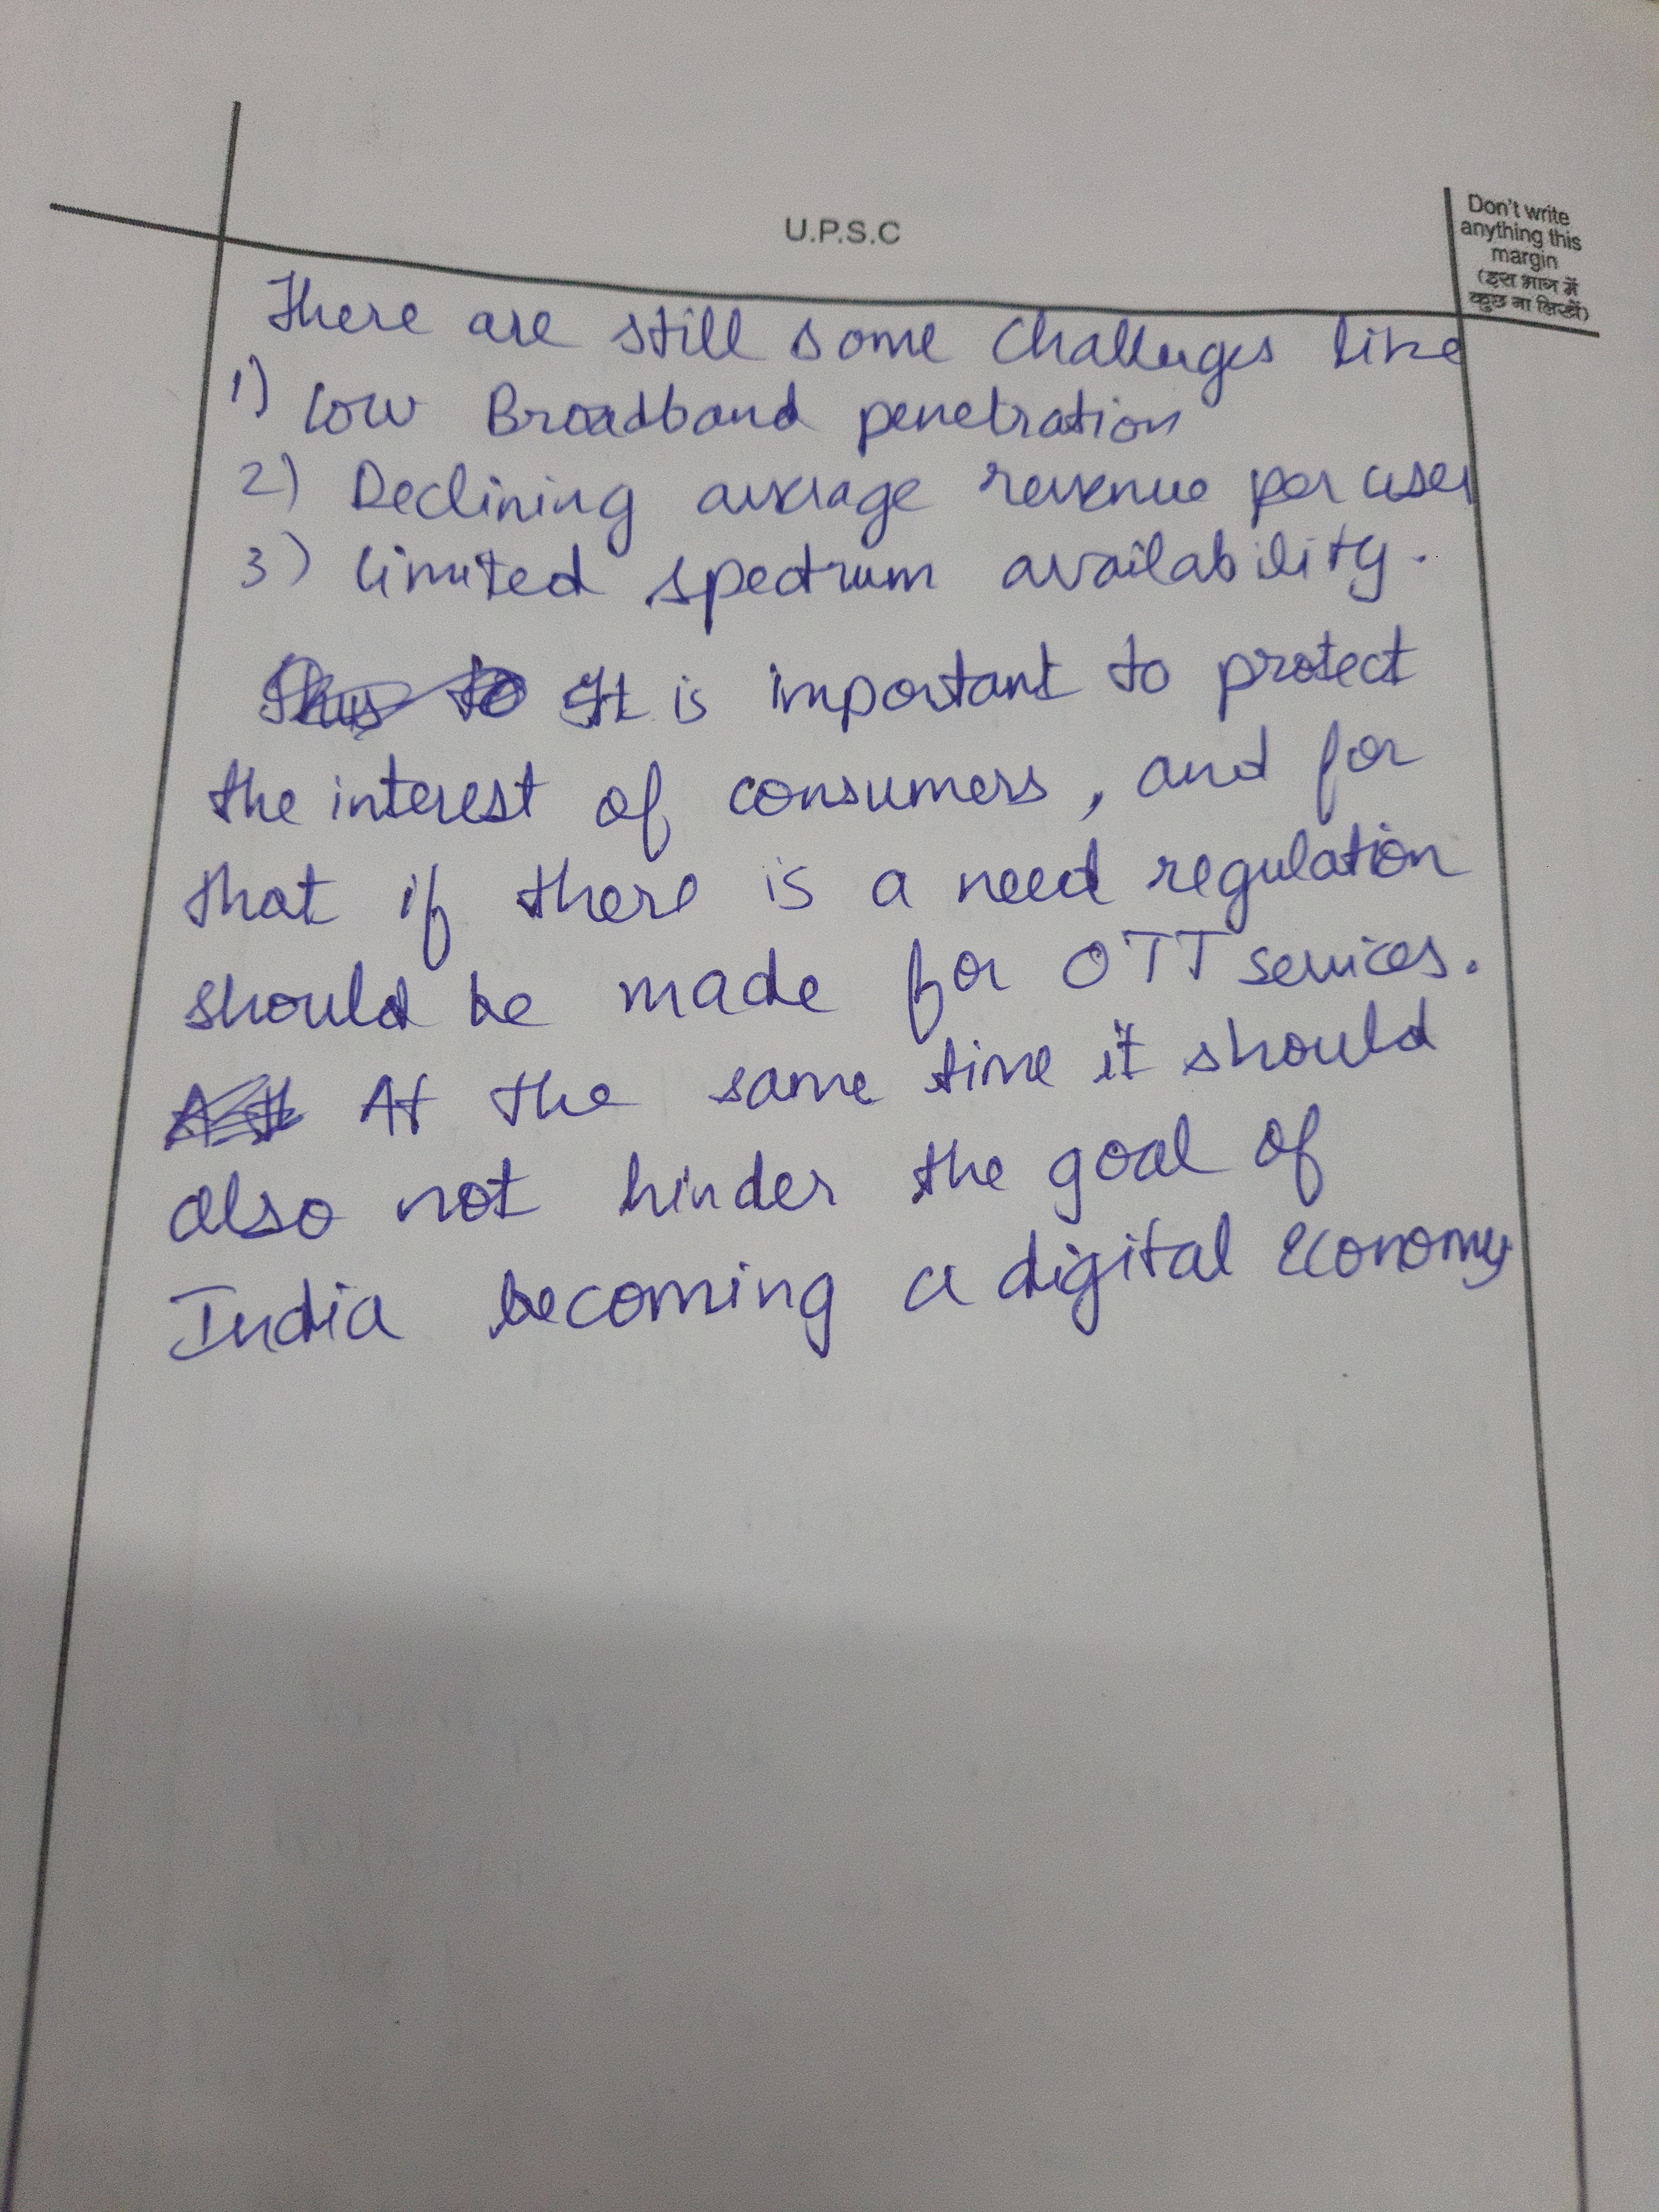 U.P.S.C
Don't write
anything this
margin
(इस भाग में
कुछ ना लिखें)
There are still some challenges like
1) Low Broadband penetration
2) Declining average revenue per user
3) limited spectrum availability.
It is important to protect
the interest of consumers, and for
that if there is a need regulation
should be made for OTT services.
At the same time it should
also not hinder the goal of
India becoming a digital economy